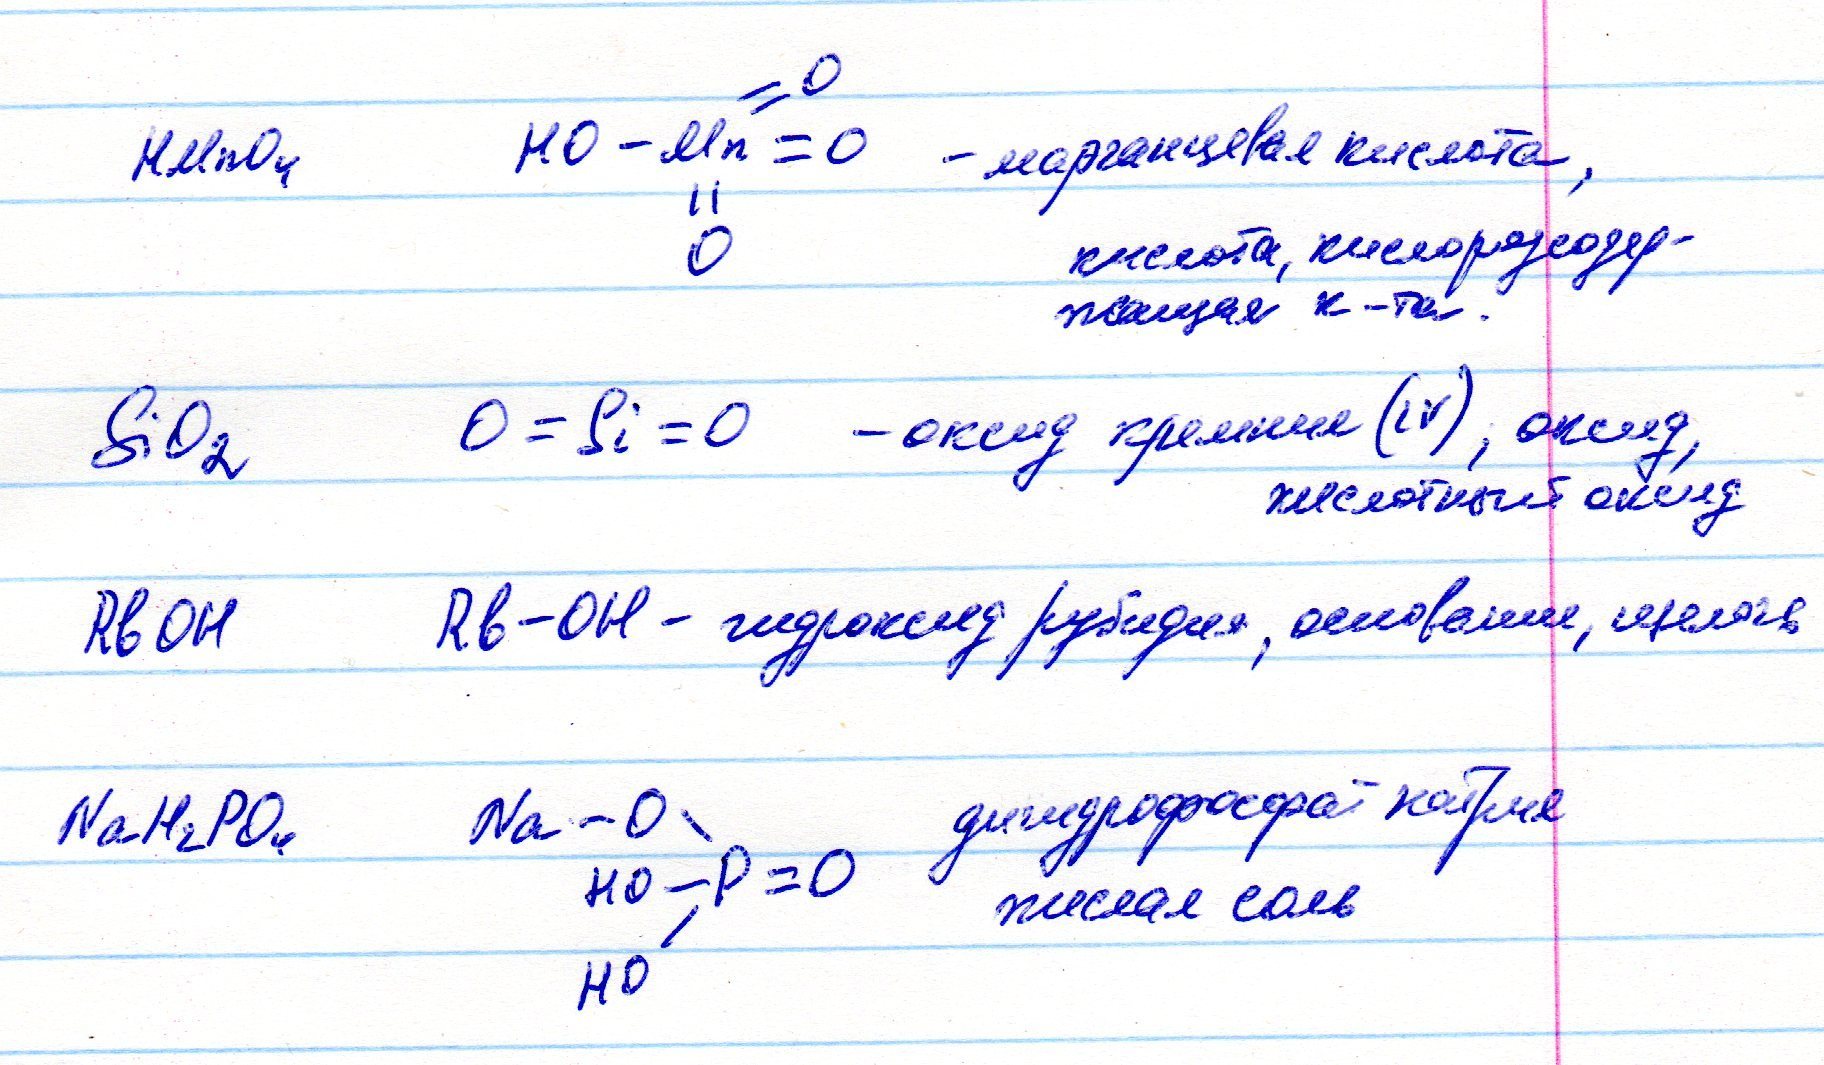 HMnO₄ HO – Mn = O = O – марганцевая кислота,
|| O
кислота, кислородсодер-
жащая к-та.
SiO₂ O = Si = O – оксид кремния (IV), оксид,
кислотный оксид
RbOH Rb – OH – гидроксид рубидия, основание, щелочь
NaH₂PO₄ Na – O \ дигидрофосфат натрия
HO – P = O кислая соль
/ HO